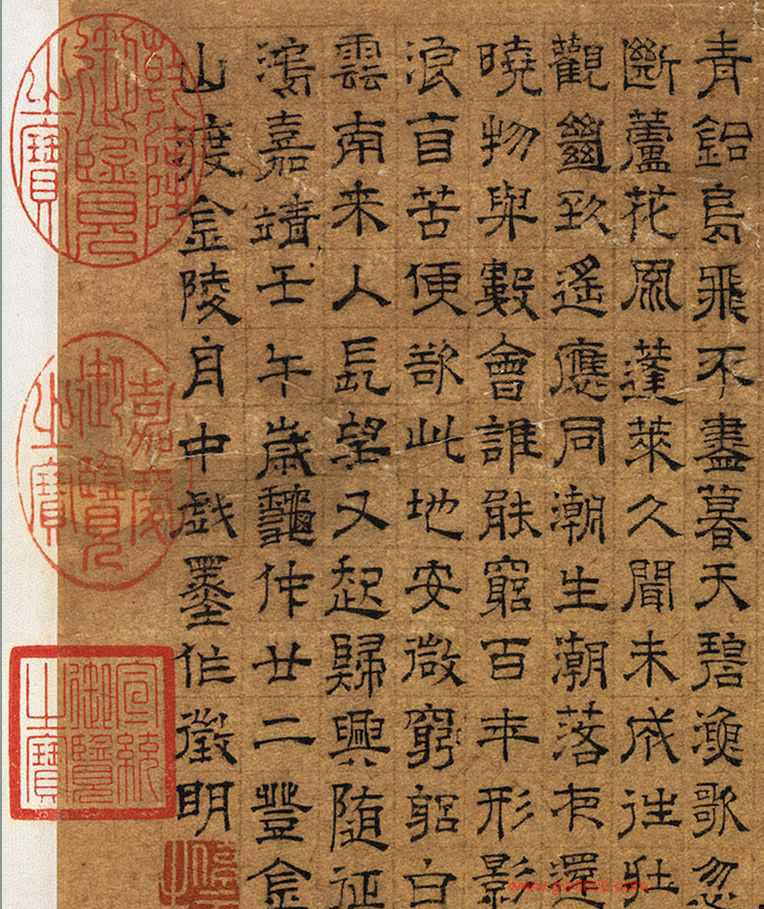 青鉛鳥飛不盡暮天碧漁歌忽
斷蘆花風蓬萊久聞未成往壯
觀絕致遙應同潮生潮落夜還
曉物與數會誰能窮百年形影
浪自苦便欲此地安微窮躬白
雲南来人長望又起歸興随征
鴻嘉靖壬午歲龝仲廿二登金
山渡金陵舟中戲墨作徵明
乾隆御覽之寶
嘉慶御覽之寶
宣統御覽之寶